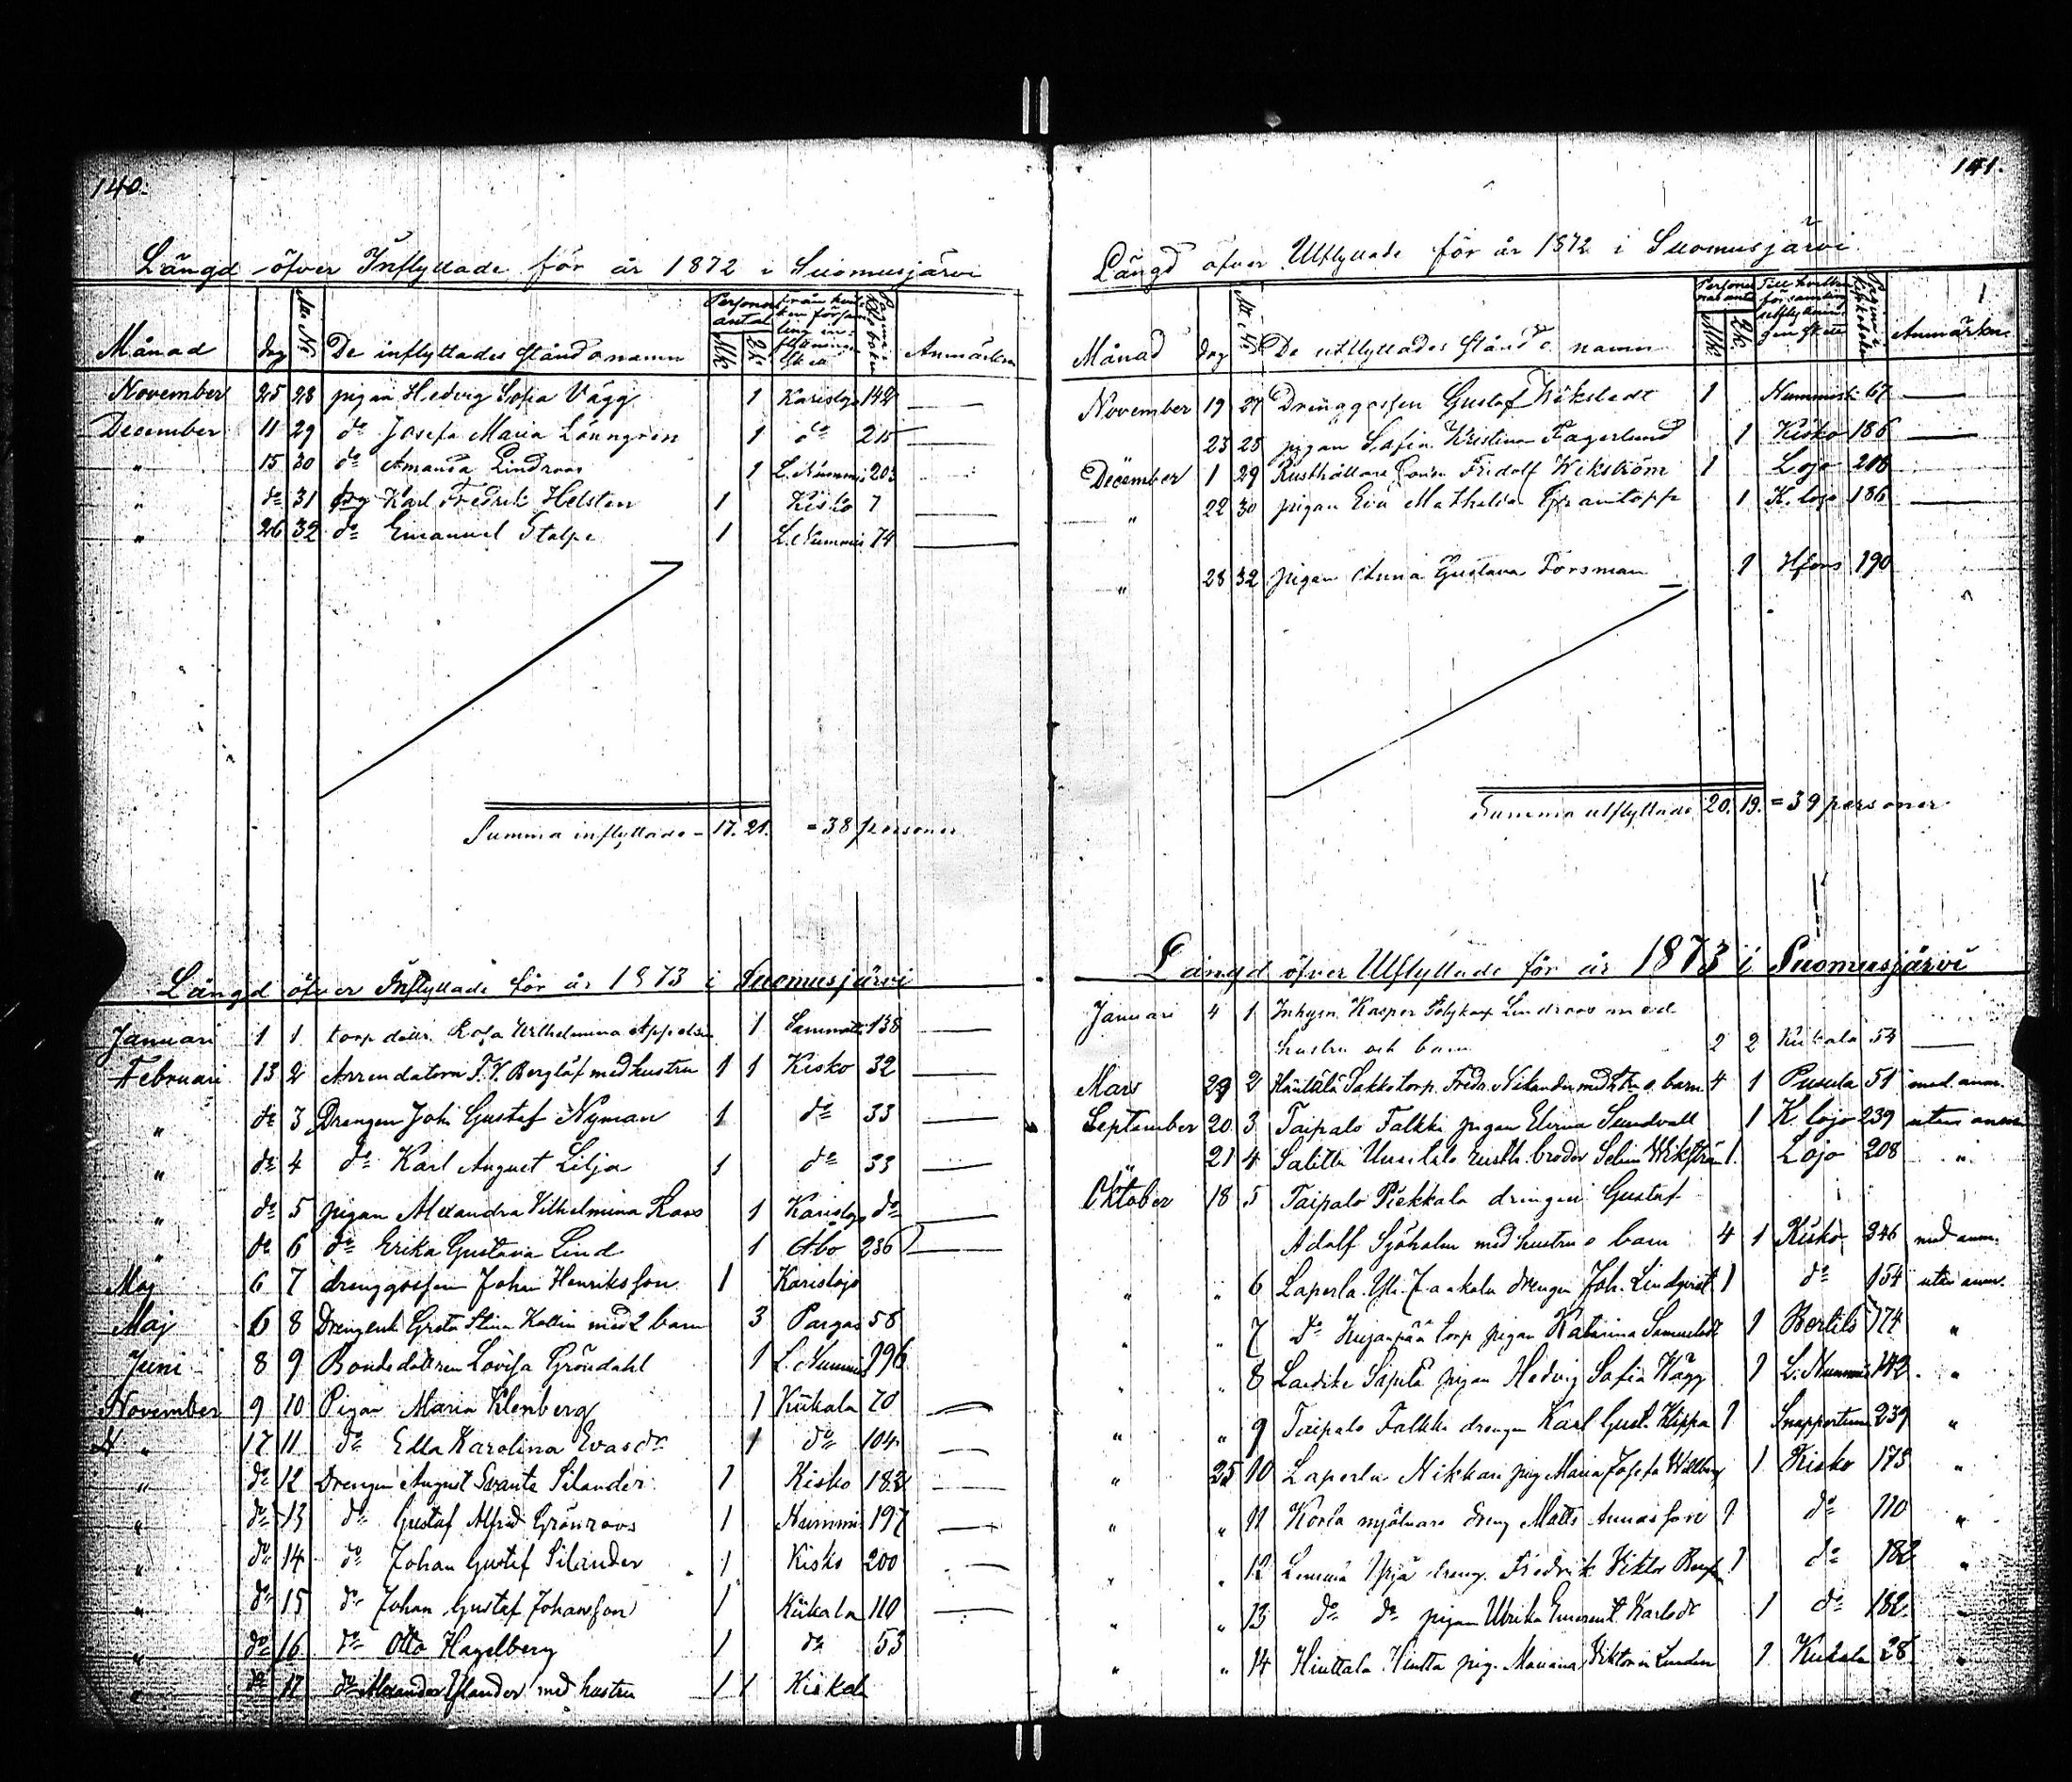 140.
Längd öfver Inflyttade för år 1872 i Suomusjärvi
Månad dag No De inflyttades stånd o namn Personers antal Mk Qk Från hvilken församling inflyttningen skett Pagina i kyrkoboken Anmärkn
November 25 28 pigan Hedvig Sofia Vägg 1 Karislojo 142
December 11 29 do Josefa Maria Lönngren 1 do 215
" 15 30 do Amanda Lindroos 1 L. Nummi 203
" do 31 Karl Fredrik Helsten 1 Kisko 7
" 26 32 do Emanuel Stolpe 1 L. Nummi 74
Summa inflyttade - 17. 21. = 38 personer
Längd öfver Inflyttade för år 1873 i Suomusjärvi
Januari 1 1 torp dottr. Rosa Wilhelmina 1 Sammatti 138
Februari 13 2 Arrendatorn F. V. Berglöf med hustru 1 1 Kisko 32
" do 3 Drengen Joh. Gustaf Nyman 1 do 33
" do 4 do Karl August Lilja 1 do 33
" do 5 pigan Alexandra Vilhelmina Roos 1 Karislojo do
" do 6 do Erika Gustava Lind 1 Åbo 236
Maj 6 7 drenggossen Johan Henriksson 1 Karislojo
Maj 6 8 Drengenk Greta Stina Kallin med 2 barn 3 Pargas 58
Juni 8 9 Bondedottren Lovisa Gröndahl 1 L. Nummi 196
November 9 10 Pigan Maria Klenberg 1 Kiikala 70
" 17 11 do Ella Karolina Evasdr 1 do 104
" do 12 Drengen August Svante Silander 1 Kisko 182
" do 13 do Gustaf Alfred Grönroos 1 Nummi 197
" do 14 do Johan Gustaf Silander 1 Kisko 200
" do 15 do Johan Gustaf Johansson 1 Kiikala 110
" do 16 do Otto Hagelberg 1 do 53
" do 17 do Alexander med hustru 1 1
141.
Längd öfver Utflyttade för år 1872 i Suomusjärvi
Månad dag No De utflyttades stånd o namn Personernas antal Mk Qk Till hvilken församling utflyttningen skett Pagina i kyrkoboken Anmärkn
November 19 27 Drenggossen Gustaf Wikstedt 1 Nummi 67
23 28 pigan Sofia Kristina Fagerlund 1 Kisko 186
December 1 29 Rusthållare Sonen Fridolf Wikström 1 Lojo 208
" 22 30 pigan Eva Mathilda Grantopp 1 K. lojo 186
" 28 32 pigan Anna Gustava Forsman 1 Hfors 190
Summa utflyttade 20. 19. = 39 personer
Längd öfver Utflyttade för år 1873 i Suomusjärvi
Januari 4 1 Inhysn. Kasper Polykarp Lindroos med
hustru och barn 2 2 Kiikala 54
Mars 29 2 torp. Fredr. Nikander med hu o. barn 4 1 Pusula 51 med anm.
September 20 3 Taipale Falkki pigan Elvina Sundvall 1 K. lojo 239 utan anm
21 4 Salittu Uusitalo rusth. broder Selim Wikström 1 Lojo 208 "
Oktober 18 5 Taipale Piekkala drengen Gustaf
Adolf Sjöholm med hustru o barn 4 1 Kisko 246 med anm.
" " 6 Laperla Yli-Jaakola drengen Joh. Lindqvist 1 do 154 utan anm.
" " 7 do Kujanpää torp pigan Katarina Samuelsdr 1 Bertils 174 "
" " 8 Laidike Sapula pigan Hedvig Sofia Wägg 1 L. Nummi 142 "
" " 9 Taipale Falkki drengen Karl Gust. Klippa 1 Snappertuna 239 "
" 25 10 Laperla Nikkari pig Maria Josefa Wallberg 1 Kisko 173 "
" " 11 Korla mjölnare dreng Matts Annasson 1 do 110 "
" " 12 Lemula Yrjä dreng. Fredrik Viktor 1 do 182 "
" " 13 do do pigan Ulrika Karlsdr 1 do 182 "
" " 14 Hintta pig. Mariana Viktoria Lunden 1 Kiikala 28 "